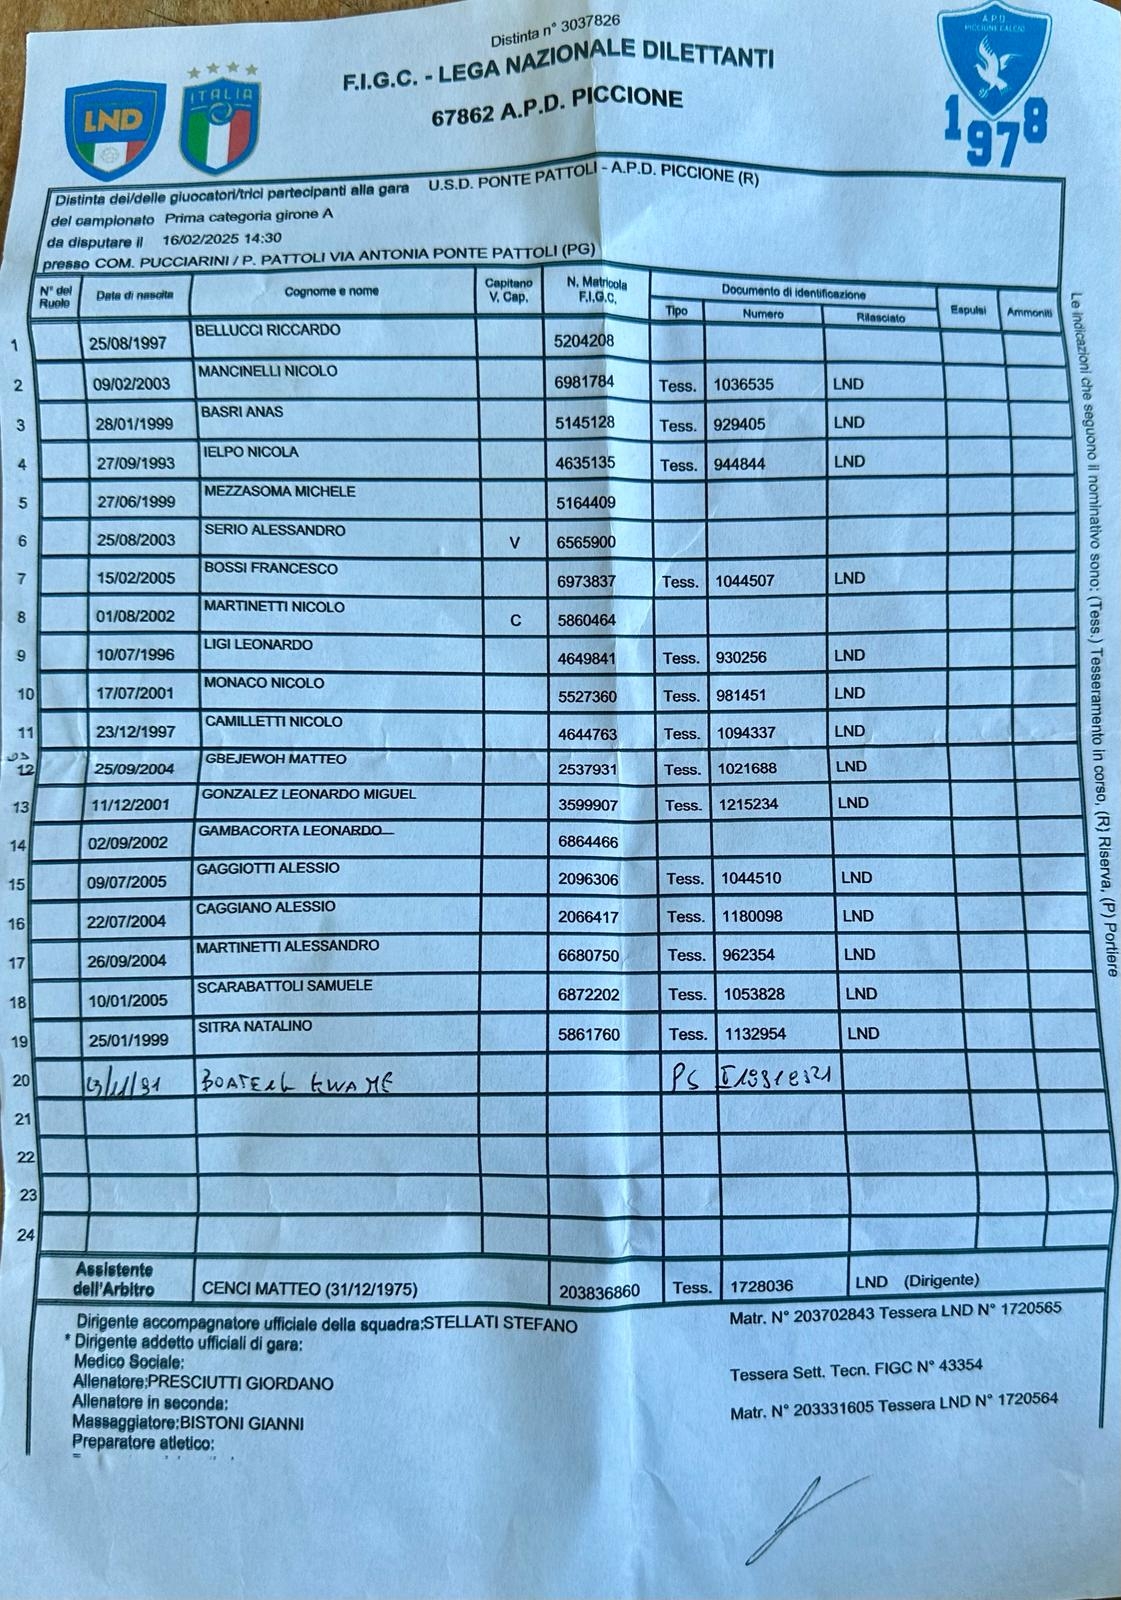 Distinta n° 3037826
F.I.G.C. - LEGA NAZIONALE DILETTANTI
67862 A.P.D. PICCIONE
LND
ITALIA
A.P.D.
PICCIONE CALCIO
1978
Distinta dei/delle giuocatori/trici partecipanti alla gara U.S.D. PONTE PATTOLI - A.P.D. PICCIONE (R)
del campionato Prima categoria girone A
da disputare il 16/02/2025 14:30
presso COM. PUCCIARINI / P. PATTOLI VIA ANTONIA PONTE PATTOLI (PG)
N° del Ruolo Data di nascita Cognome e nome Capitano V. Cap. N. Matricola F.I.G.C. Documento di identificazione Espulsi Ammoniti
Tipo Numero Rilasciato
1 25/08/1997 BELLUCCI RICCARDO 5204208
2 09/02/2003 MANCINELLI NICOLO 6981784 Tess. 1036535 LND
3 28/01/1999 BASRI ANAS 5145128 Tess. 929405 LND
4 27/09/1993 IELPO NICOLA 4635135 Tess. 944844 LND
5 27/06/1999 MEZZASOMA MICHELE 5164409
6 25/08/2003 SERIO ALESSANDRO V 6565900
7 15/02/2005 BOSSI FRANCESCO 6973837 Tess. 1044507 LND
8 01/08/2002 MARTINETTI NICOLO C 5860464
9 10/07/1996 LIGI LEONARDO 4649841 Tess. 930256 LND
10 17/07/2001 MONACO NICOLO 5527360 Tess. 981451 LND
11 23/12/1997 CAMILLETTI NICOLO 4644763 Tess. 1094337 LND
12 25/09/2004 GBEJEWOH MATTEO 2537931 Tess. 1021688 LND
13 11/12/2001 GONZALEZ LEONARDO MIGUEL 3599907 Tess. 1215234 LND
14 02/09/2002 GAMBACORTA LEONARDO 6864466
15 09/07/2005 GAGGIOTTI ALESSIO 2096306 Tess. 1044510 LND
16 22/07/2004 CAGGIANO ALESSIO 2066417 Tess. 1180098 LND
17 26/09/2004 MARTINETTI ALESSANDRO 6680750 Tess. 962354 LND
18 10/01/2005 SCARABATTOLI SAMUELE 6872202 Tess. 1053828 LND
19 25/01/1999 SITRA NATALINO 5861760 Tess. 1132954 LND
20 KWAME PS
21
22
23
24
Assistente dell'Arbitro CENCI MATTEO (31/12/1975) 203836860 Tess. 1728036 LND (Dirigente)
Dirigente accompagnatore ufficiale della squadra:STELLATI STEFANO Matr. N° 203702843 Tessera LND N° 1720565
* Dirigente addetto ufficiali di gara:
Medico Sociale:
Allenatore:PRESCIUTTI GIORDANO Tessera Sett. Tecn. FIGC N° 43354
Allenatore in seconda:
Massaggiatore:BISTONI GIANNI Matr. N° 203331605 Tessera LND N° 1720564
Preparatore atletico:
Le indicazioni che seguono il nominativo sono: (Tess.) Tesseramento in corso, (R) Riserva, (P) Portiere